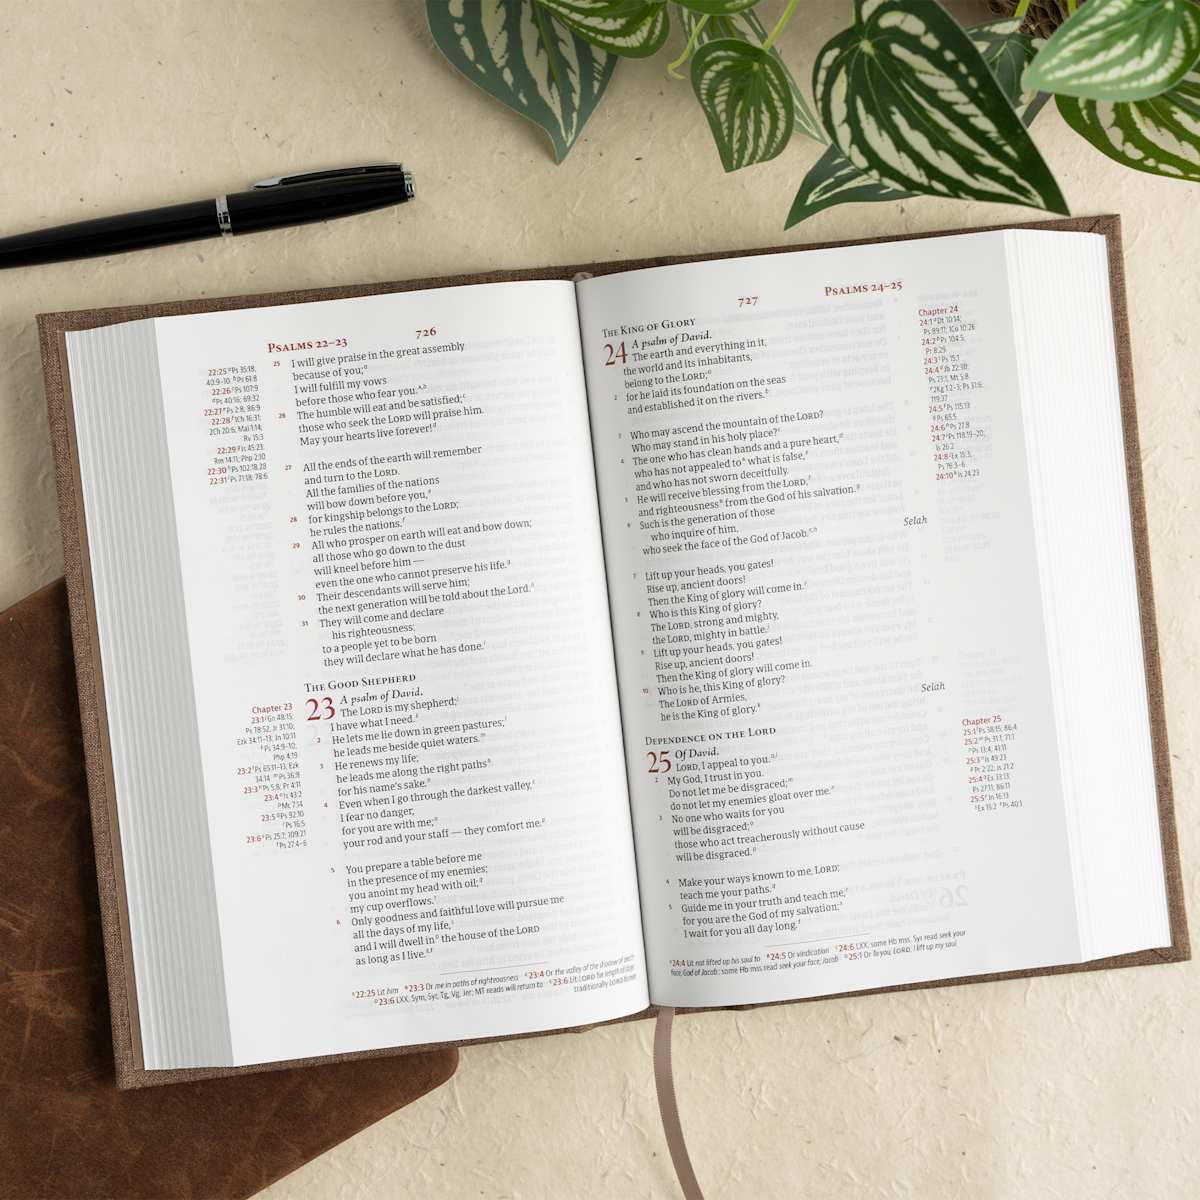 PSALMS 22–23
726
22:25 Ps 35:18;
40:9–10 Ps 61:8
22:26 Ps 107:9
Ps 40:16; 69:32
22:27 Ps 2:8; 86:9
22:28 1Ch 16:31;
2Ch 20:6; Mal 1:14;
Rv 15:3
22:29 Is 45:23;
Rm 14:11; Php 2:10
22:30 Ps 102:18,28
22:31 Ps 71:18; 78:6
25 I will give praise in the great assembly
because of you;
I will fulfill my vows
before those who fear you.
26 The humble will eat and be satisfied;
those who seek the LORD will praise him.
May your hearts live forever!
27 All the ends of the earth will remember
and turn to the LORD.
All the families of the nations
will bow down before you,
28 for kingship belongs to the LORD;
he rules the nations.
29 All who prosper on earth will eat and bow down;
all those who go down to the dust
will kneel before him —
even the one who cannot preserve his life.
30 Their descendants will serve him;
the next generation will be told about the Lord.
31 They will come and declare
his righteousness;
to a people yet to be born
they will declare what he has done.
THE GOOD SHEPHERD
Chapter 23
23:1 Gn 48:15;
Ps 78:52; Jr 31:10;
Ezk 34:11–13; Jn 10:11
Ps 34:9–10;
Php 4:19
23:2 Ps 65:11–13; Ezk
34:14 Ps 36:8
23:3 Ps 5:8; Pr 4:11
23:4 Is 43:2
Mc 7:14
23:5 Ps 92:10
Ps 16:5
23:6 Ps 25:7; 109:21
Ps 27:4–6
23 A psalm of David.
The LORD is my shepherd;
I have what I need.
2 He lets me lie down in green pastures;
he leads me beside quiet waters.
3 He renews my life;
he leads me along the right paths
for his name's sake.
4 Even when I go through the darkest valley,
I fear no danger,
for you are with me;
your rod and your staff — they comfort me.
5 You prepare a table before me
in the presence of my enemies;
you anoint my head with oil;
my cup overflows.
6 Only goodness and faithful love will pursue me
all the days of my life,
and I will dwell in the house of the LORD
as long as I live.
22:25 Lit him 23:3 Or me in paths of righteousness 23:4 Or the valley of the shadow of death
23:6 LXX, Sym, Syr, Tg, Vg, Jer; MT reads will return to 23:6 Lit LORD for length of days;
traditionally LORD forever
727
PSALMS 24–25
THE KING OF GLORY
24 A psalm of David.
The earth and everything in it,
the world and its inhabitants,
belong to the LORD;
2 for he laid its foundation on the seas
and established it on the rivers.
3 Who may ascend the mountain of the LORD?
Who may stand in his holy place?
4 The one who has clean hands and a pure heart,
who has not appealed to what is false,
and who has not sworn deceitfully.
5 He will receive blessing from the LORD,
and righteousness from the God of his salvation.
6 Such is the generation of those
who inquire of him,
who seek the face of the God of Jacob.
Selah
7 Lift up your heads, you gates!
Rise up, ancient doors!
Then the King of glory will come in.
8 Who is this King of glory?
The LORD, strong and mighty,
the LORD, mighty in battle.
9 Lift up your heads, you gates!
Rise up, ancient doors!
Then the King of glory will come in.
10 Who is he, this King of glory?
The LORD of Armies,
he is the King of glory.
Selah
Chapter 24
24:1 Dt 10:14;
Ps 89:11; 1Co 10:26
24:2 Ps 104:5;
Pr 8:29
24:3 Ps 15:1
24:4 Jb 22:30;
Ps 73:1; Mt 5:8
24:5 Ps 115:13
Ps 65:5
24:6 Ps 27:8
24:7 Ps 118:19–20;
Is 26:2
24:8 Ex 15:3;
Ps 76:3–6
24:10 Is 24:23
DEPENDENCE ON THE LORD
25 Of David.
LORD, I appeal to you.
2 My God, I trust in you.
Do not let me be disgraced;
do not let my enemies gloat over me.
3 No one who waits for you
will be disgraced;
those who act treacherously without cause
will be disgraced.
4 Make your ways known to me, LORD;
teach me your paths.
5 Guide me in your truth and teach me,
for you are the God of my salvation;
I wait for you all day long.
Chapter 25
25:1 Ps 38:15; 86:4
25:2 Ps 31:1; 71:1
Ps 13:4; 41:11
25:3 Is 49:23
Ps 2:22; Is 21:2
25:4 Ex 33:13;
Ps 27:11; 86:11
25:5 Jn 16:13
Ex 15:2 Ps 40:1
24:4 Lit not lifted up his soul to 24:5 Or vindication 24:6 LXX, some Hb mss, Syr read seek your
face, God of Jacob; some Hb mss read seek your face, Jacob 25:1 Or To you, LORD, I lift up my soul